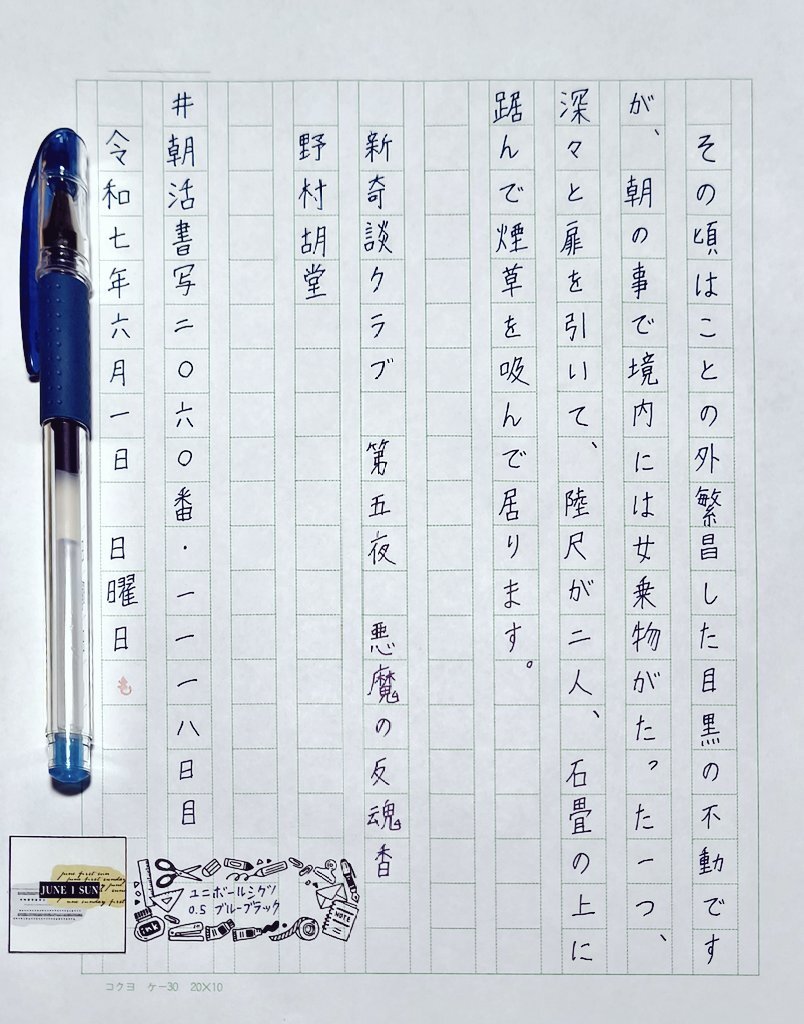 その頃はことの外繁昌した目黒の不動です
が、朝の事で境内には女乗物がたった一つ、
深々と扉を引いて、陸尺が二人、石畳の上に
踞んで煙草を吸んで居ります。
新奇談クラブ　第五夜　悪魔の反魂香
野村胡堂
#朝活書写二〇六〇番・一一一八日目
令和七年六月一日　日曜日
june first sun
june first sunday
JUNE 1 SUN
june sunday first
ユニボールシグノ
0.5 ブルーブラック
ink
NOTE
コクヨ　ケ-30　20×10